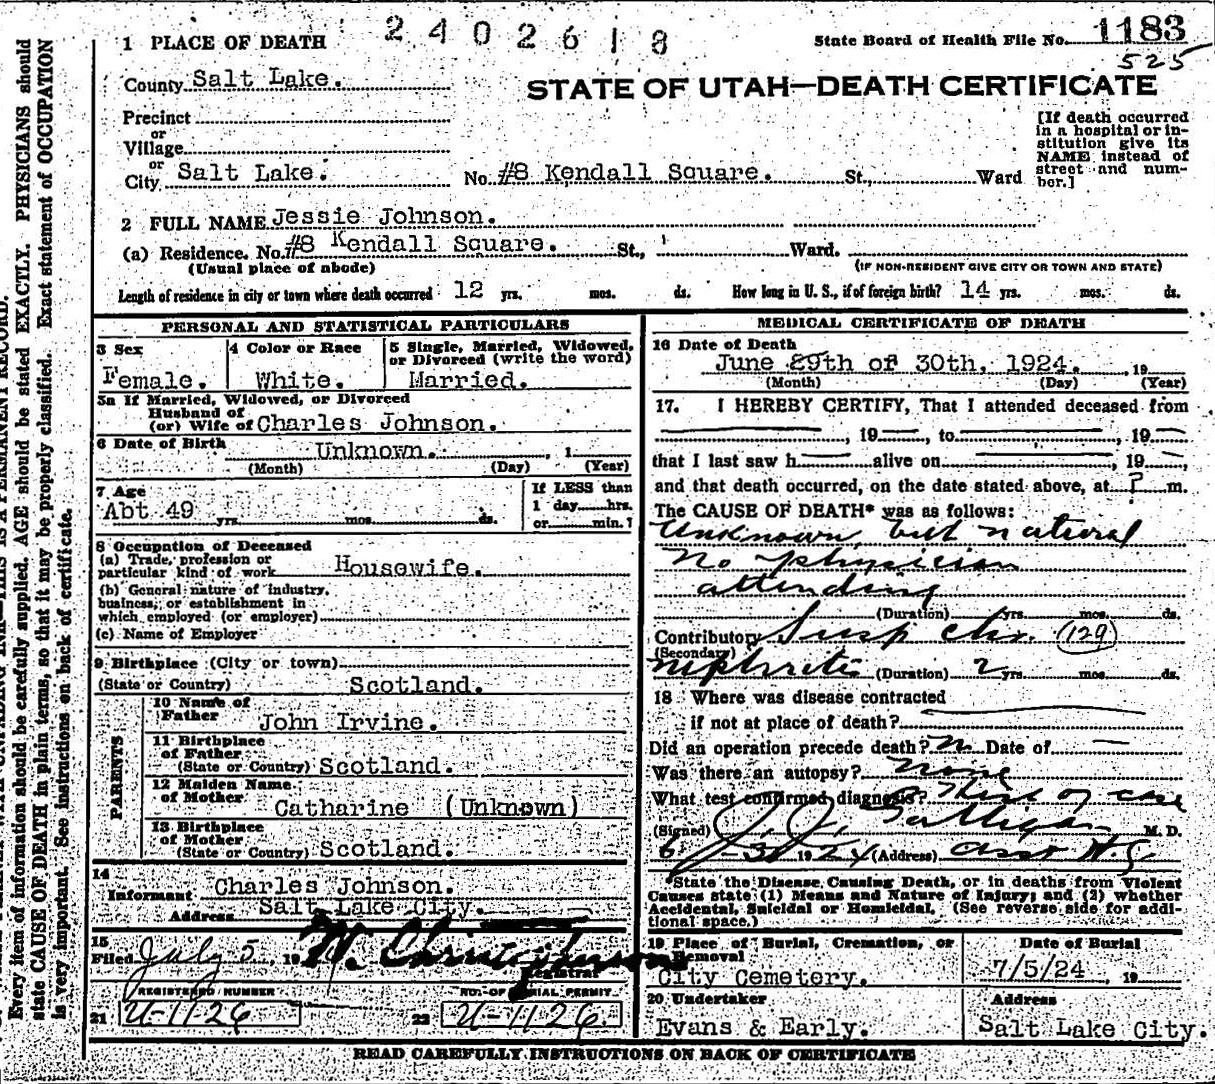 2402618
State Board of Health File No. 1183
525
1 PLACE OF DEATH
County Salt Lake.
STATE OF UTAH—DEATH CERTIFICATE
Precinct
or
Village
or
City Salt Lake. No. #8 Kendall Square. St., Ward
[If death occurred
in a hospital or in-
stitution give its
NAME instead of
street and num-
ber.]
2 FULL NAME Jessie Johnson.
(a) Residence. No. #8 Kendall Square. St., Ward.
(Usual place of abode) (IF NON-RESIDENT GIVE CITY OR TOWN AND STATE)
Length of residence in city or town where death occurred 12 yrs. mos. ds. How long in U. S., if of foreign birth? 14 yrs. mos. ds.
PERSONAL AND STATISTICAL PARTICULARS
3 Sex
Female.
4 Color or Race
White.
5 Single, Married, Widowed,
or Divorced (write the word)
Married.
5a If Married, Widowed, or Divorced
Husband of
(or) Wife of Charles Johnson.
6 Date of Birth Unknown. , 1
(Month) (Day) (Year)
7 Age
Abt 49 yrs. mos. ds.
If LESS than
1 day hrs.
or min.?
8 Occupation of Deceased
(a) Trade, profession or
particular kind of work Housewife.
(b) General nature of industry,
business, or establishment in
which employed (or employer)
(c) Name of Employer
9 Birthplace (City or town)
(State or Country) Scotland.
PARENTS
10 Name of
Father John Irvine.
11 Birthplace
of Father
(State or Country) Scotland.
12 Maiden Name
of Mother Catharine (Unknown)
13 Birthplace
of Mother
(State or Country) Scotland.
14
Informant Charles Johnson.
Address Salt Lake City.
15
Filed July 5, 19 W. Christopherson
Registrar
REGISTERED NUMBER
21 U-1126
NO. OF BURIAL PERMIT
22 U-1126.
MEDICAL CERTIFICATE OF DEATH
16 Date of Death
June 29th or 30th, 1924. , 19
(Month) (Day) (Year)
17. I HEREBY CERTIFY, That I attended deceased from
, 19 , to , 19
that I last saw h alive on , 19 ,
and that death occurred, on the date stated above, at ? m.
The CAUSE OF DEATH* was as follows:
Unknown, but natural
No physician
attending
(Duration) yrs. mos. ds.
Contributory Susp chr. (129)
(Secondary)
nephritis (Duration) 2 yrs. mos. ds.
18 Where was disease contracted
if not at place of death?
Did an operation precede death? n Date of —
Was there an autopsy? none
What test confirmed diagnosis? Hist of case
(Signed) J. J. Galligan M. D.
6-30 1924 (Address) asst H.
*State the Disease Causing Death, or in deaths from Violent
Causes state (1) Means and Nature of Injury; and (2) whether
Accidental, Suicidal or Homicidal. (See reverse side for addi-
tional space.)
19 Place of Burial, Cremation, or
Removal
City Cemetery.
Date of Burial
7/5/24 , 19
20 Undertaker
Evans & Early.
Address
Salt Lake City.
READ CAREFULLY INSTRUCTIONS ON BACK OF CERTIFICATE
Every item of information should be carefully supplied. AGE should be stated EXACTLY. PHYSICIANS should
state CAUSE OF DEATH in plain terms, so that it may be properly classified. Exact statement of OCCUPATION
is very important. See instructions on back of certificate.